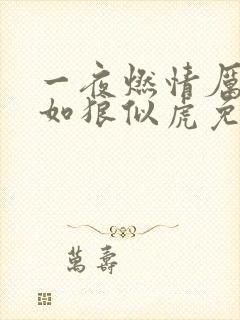 一夜燃情厲
如狼似虎免
萬壽